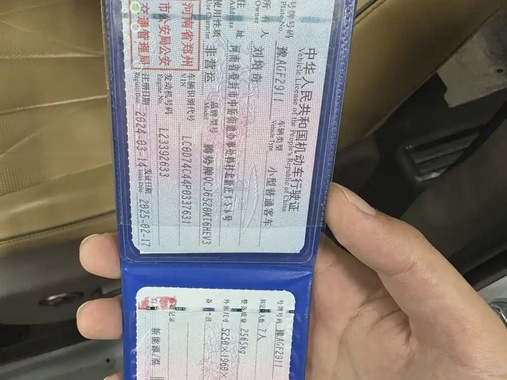 中华人民共和国机动车行驶证
Vehicle License of the People's Republic of China
号牌号码 豫AGF2911 车辆类型 小型普通客车
Plate No. Vehicle Type
所有人 刘
Owner
住址 河南省登封市中岳街道办事处 156号
Address
使用性质 非营运 品牌型号 腾势牌QCJ6520
Use Character Model
河南省郑州
市公安局公安
交通管理局
车辆识别代号 LC0D74C44P0337631
VIN
发动机号码 LZ3392633
Engine No.
注册日期 2024-03-14 发证日期 2025-02-17
Register Date Issue Date
号牌号码 豫AGF2911
核定载人数 7人
整备质量 2565kg
外廓尺寸 ×1960×
备注
记录
新能源/